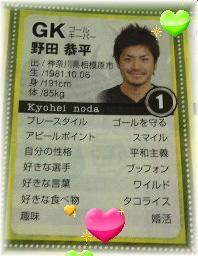 GK ゴール
キーパー
野田 恭平
出 / 神奈川県相模原市
生 / 1981.10.06
身 / 191cm
体 / 85kg
Kyohei noda
1
プレースタイル ゴールを守る
アピールポイント スマイル
自分の性格 平和主義
好きな選手 ブッフォン
好きな言葉 ワイルド
好きな食べ物 タコライス
趣味 婚活